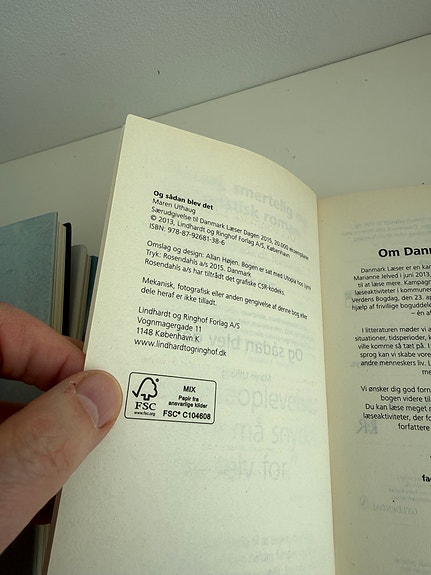 Og sådan blev det
Maren Uthaug
Særudgivelse til Danmark Læser Dagen 2015, 20.000 eksemplarer
© 2013, Lindhardt og Ringhof Forlag A/S, København
ISBN: 978-87-92681-38-6
Omslag og design: Allan Højen. Bogen er sat med Utopia hos Lymi
Tryk: Rosendahls a/s 2015, Danmark
Rosendahls a/s har tiltrådt det grafiske CSR-kodeks.
Mekanisk, fotografisk eller anden gengivelse af denne bog eller
dele heraf er ikke tilladt.
Lindhardt og Ringhof Forlag A/S
Vognmagergade 11
1148 København K
www.lindhardtogringhof.dk
FSC
www.fsc.org
MIX
Papir fra
ansvarlige kilder
FSC® C104608
Om Dan
Danmark Læser er en kam
Marianne Jelved i juni 2013,
til at læse mere. Kampagn
læseaktiviteter i kommuner
Verdens Bogdag, den 23. ap
hjælp af frivillige boguddele
– én af
I litteraturen møder vi an
situationer, tidsperioder, k
ville komme så tæt på. I
sprog kan vi skabe vores
andre menneskers liv. L
me
Vi ønsker dig god forn
bogen videre til
Du kan læse meget m
læseaktiviteter, der fo
forfattere
fa